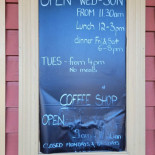 OPEN WED-SUN
FROM 11:30am
Lunch 12-3pm
dinner Fri & Sat
6-8pm
TUES - from 4pm
No meals
COFFEE SHOP
OPEN
CLOSED MONDAYS &